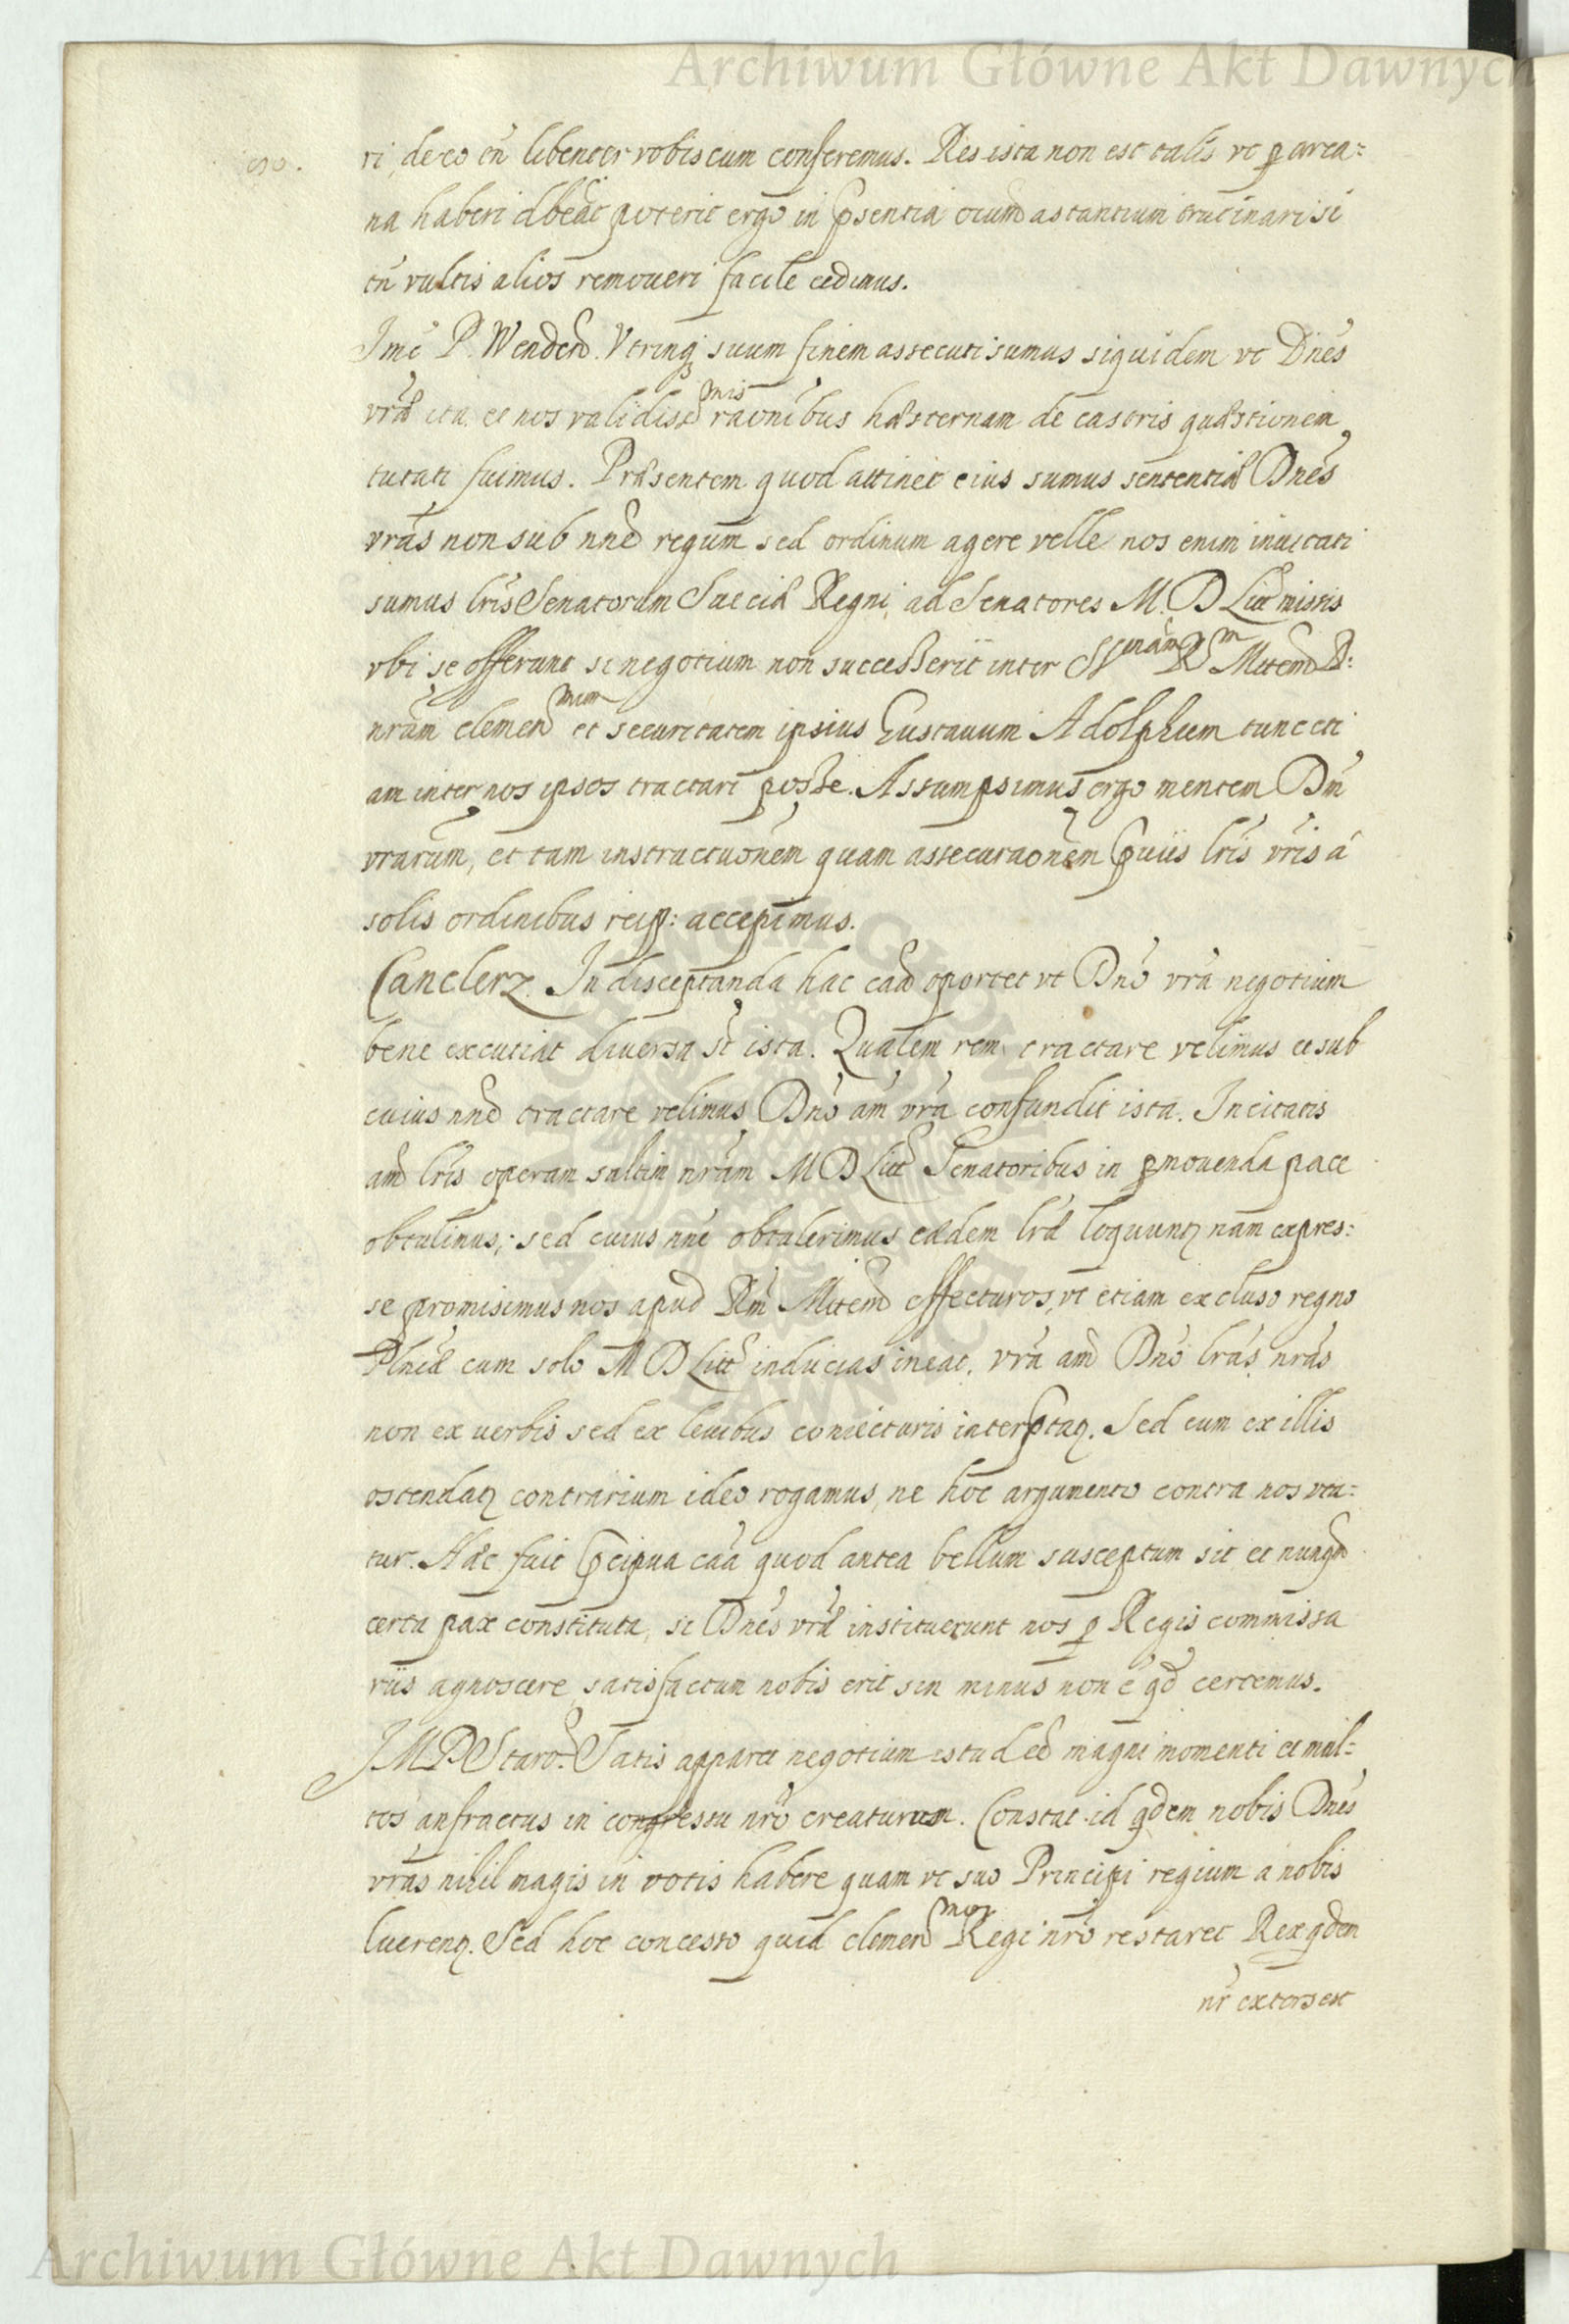 Archiwum Główne Akt Dawnych
ri, de eo tñ libenter vobiscum conferemus. Res ista non est talis vt ꝑ arca=
na haberi dbeat poterit ergo in p̃sentia oium astantium trutinari si
tñ vultis alios remoueri facile cedimus.
Jmć P. Wenden̄. Vtrinqȝ suum finem assecuti sumus siquidem vt Dnẽs
vrã ita et nos validiss̃mis raõnibus hæsternam de castris quæstionem
tutati fuimus. Præsentem quod attinet eius sumus sententiæ Dnẽs
vrãs non sub nnẽ regum sed ordinum agere velle nos enim inuitati
sumus lrĩs Senatorum Sueciæ Regni, ad Senatores M. D Litt missis
vbi se offerunt si negotium non successerit inter Sernam Rm Mttem R:
nrãm clemenmum et securitatem ipsius Gustauum Adolphum tunc eti
am inter nos ipsos tractari posse. Assumpsimus ergo mentem Dm̃
vrarum, et tam instructionẽm quam assecuraõnẽm p̃uiis lrĩs vrĩs á
solis ordinibus reip: accepimus.
Canclerz. In disceptanda hac caã oportet vt Dnõ vrã negotium
bene excutiat diuersa st̃ ista. Qualem rem tractare velimus et sub
cuius nnẽ tractare velimus Dnõ am̃ vrã confundit ista. In citatis
am̃ lrĩs operam saltim nrãm M D Litt Senatoribus in ꝓmouenda pace
obtulimus; sed cuius nnẽ obtulerimus eædem lræ loquunt̃ nam expres:
se promisimus nos apud Rm̃ Mttem effecturos, vt etiam excluso regno
Plniæ cum solo M D Litt inducias ineat, vrã am̃ Dnõ lrãs nrãs
non ex uerbis sed ex leuibus coniecturis interp̃tat̃. Sed cum ex illis
ostendat̃ contrarium ideo rogamus, ne hoc argumento contra nos vta=
tur. Hæc fuit p̃cipua caã quod antea bellum susceptum sit et nunq̃
certa pax constituta, si Dnẽs vræ instituerunt nos ꝑ Regis commissa
riis agnoscere, satisfactum nobis erit sin minus non ẽ qd̃ certemus.
JMP Staro. Satis apparet negotium istud eẽ magni momenti et mul=
tos anfractus in congressu nrõ creaturum. Constat id qd̃em nobis Dnẽs
vrãs nihil magis in votis habere quam vt suo Principi regium a nobis
luerent̃. Sed hoc concesso quid clemenmo Regi nrõ restaret Rex qd̃em
nr̃ extors est
Archiwum Główne Akt Dawnych